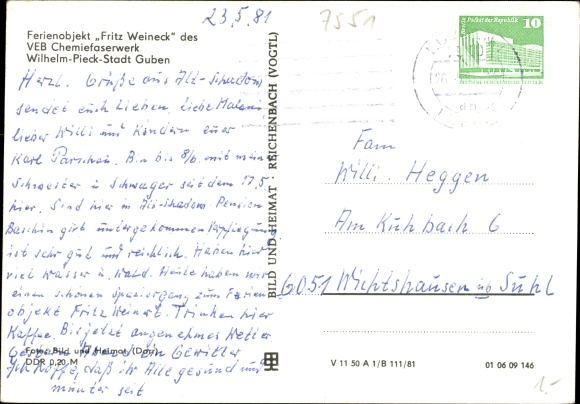 23.5.81
7551
Ferienobjekt „Fritz Weineck" des
VEB Chemiefaserwerk
Wilhelm-Pieck-Stadt Guben
Herzl. Grüße aus Alt-Schadow
sendet euch Lieben, liebe Melani,
lieber Willi und Kindern euer
Karl Parschen. Bin bis 8/6. mit mein
Schwester u Schwager seit dem 17,5
hier. Sind hier in Alt-Shadow Pension
Baschin gut untergekommen Verpflegung
ist sehr gut und reichlich. Haben hier
viel Wasser u. Wald. Heute haben wir
einen schönen Spaziergang zum Ferien
objekt Fritz Weinert. Trinken hier
Kaffe. Bis jetzt angenehmes Wetter
Gestern Abend ein Gewitter
Ich hoffe, daß ihr Alle gesund und
munter seit
Foto: Bild und Heimat (Darr)
DDR 0,20 M
BILD UND HEIMAT · REICHENBACH (VOGTL)
Berlin Palast der Republik
10
Fam
Willi. Heggen
Am Kuhbach 6
6051 Wichtshausen üb Suhl
V 11 50 A 1/B 111/81
01 06 09 146
1.-